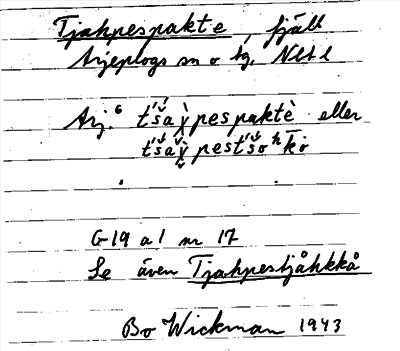 Tjahpespakte, fjäll
Arjeplogs sn o tg, Nbt l
Arj.⁶ t́šax̀pespaktè eller
t́šax̀pest́šoʰkō
G 19 a 1 nr 17
Se även Tjahpestjåhkkå
Bo Wickman 1943